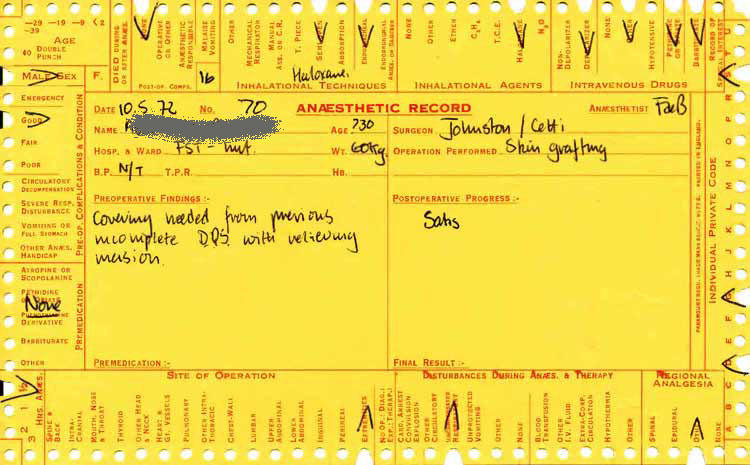 -29 -19 -9 <2
-39
AGE
40 DOUBLE PUNCH
MALE SEX F.
DIED DURING OR AFTER ANÆS.
NONE
OPERATIVE OR OTHER
ANÆSTHETIC RESPONSIBLE
MALAISE VOMITING
OTHER
POST-OP. COMPS.
16
MECHANICAL RESPIRATOR
MANUAL ASS. OR C.R.
T. PIECE
ABSORPTION
Haloxane.
INHALATIONAL TECHNIQUES
NONE
OTHER
ETHER
T.C.E.
N₂O
INHALATIONAL AGENTS
OTHER
NON-DEPOLARIZER
DEPOLARIZER
NONE
OTHER
HYPOTENSIVE
INTRAVENOUS DRUGS
RECORD OF SPECIAL INTEREST
EMERGENCY
GOOD
FAIR
POOR
CIRCULATORY DECOMPENSATION
SEVERE RESP. DISTURBANCE
VOMITING OR FULL STOMACH
OTHER ANÆS. HANDICAP
PRE-OP. COMPLICATIONS & CONDITION
ATROPINE OR SCOPOLAMINE
PETHIDINE OR OPIATE
None
PHENOTHIAZINE DERIVATIVE
BARBITURATE
OTHER
PREMEDICATION
DATE 10.5.72 No. 70 ANÆSTHETIC RECORD ANÆSTHETIST
NAME AGE ?30 SURGEON Johnston / Cetti
HOSP. & WARD FST - hut. WT. 60kg. OPERATION PERFORMED Skin grafting
B.P. N/T T.P.R. HB.
PREOPERATIVE FINDINGS :-
Covering needed from previous
incomplete DPS with relieving
incision.
POSTOPERATIVE PROGRESS :-
Satis
PREMEDICATION :- FINAL RESULT :-
INDIVIDUAL PRIVATE CODE
1½ 1 2 3
HRS. ANÆS.
SITE OF OPERATION
SPINE & BACK
INTRA-CRANIAL
MOUTH, NOSE & THROAT
THYROID
OTHER HEAD & NECK
HEART & GT. VESSELS
PULMONARY
OTHER INTRA-THORACIC
CHEST-WALL
LUMBAR
UPPER ABDOMINAL
LOWER ABDOMINAL
INGUINAL
PERINEAL
EXTREMITIES
DISTURBANCES DURING ANÆS. & THERAPY
CARD. ARREST
CONVULSION
EXPLOSION
OTHER CIRCULATORY
UNPROTECTED VOMITING
OTHER
NONE
BLOOD TRANSFUSION
OTHER I.V. FLUID
EXTRA-CORP. CIRCULATION
HYPOTHERMIA
OTHER
REGIONAL ANALGESIA
SPINAL
EPIDURAL
OTHER
NONE
A B C